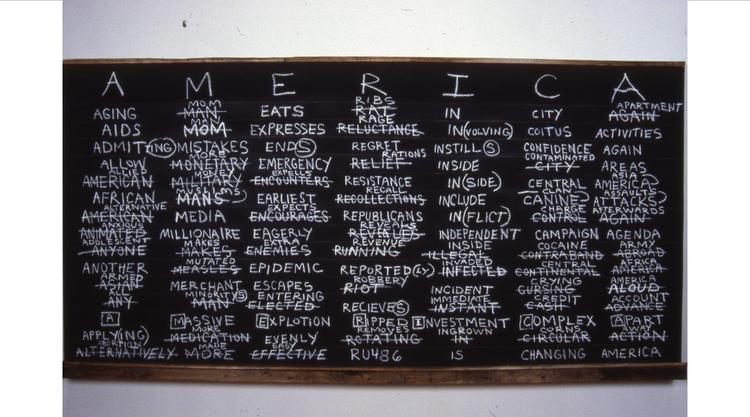 A M E R I C A
MOM RIBS APARTMENT
AGING MAN EATS RAT IN CITY AGAIN
MAN RAGE
AIDS MOM EXPRESSES RELUCTANCE IN(VOLVING) COITUS ACTIVITIES
ADMIT(TING) MISTAKES END(S) REGRET INSTILL(S) CONFIDENCE AGAIN
MORE RATIONS CONTAMINATED
ALLOW MONETARY EMERGENCY RELIEF INSIDE CITY AREAS
ALLIED MONEY EXPELLS ASIA
AMERICAN MILITARY ENCOUNTERS RESISTANCE IN(SIDE) CENTRAL AMERICA
RECALL CLAN ASSAULTS
AFRICAN MAN'S EARLIEST RECOLLECTIONS INCLUDE CANINE ATTACKS
ALTERNATIVE EXPECTS CHARGE AFTERWARDS
AMERICAN MEDIA ENCOURAGES REPUBLICANS IN(FLICT) CONTROL AGAIN
ANXIOUS REVEALS
ANIMATED MILLIONAIRE EAGERLY REVALUES INDEPENDENT CAMPAIGN AGENDA
ADOLESCENT MAKES EXTRA REVENUE INSIDE COCAINE ARMY
ANYONE MAKES ENEMIES RUNNING ILLEGAL CONTRABAND ABROAD
MUTATED INVADED CENTRAL AFRICA
ANOTHER MEASLES EPIDEMIC REPORTED(LY) INFECTED CONTINENTAL AMERICA
ARMED ROBBERY CRYING AMERICA
ASIAN MERCHANT ESCAPES RIOT INCIDENT CURSING ALOUD
ALL MINORITY(S) ENTERING IMMEDIATE CREDIT ACCOUNT
ANY MAN ELECTED RECIEVE(S) INSTANT CASH ADVANCE
A MASSIVE EXPLOTION RIPPED INVESTMENT COMPLEX APART
MORE REMOVES INGROWN CORNS AWAY
APPLY(ING) MEDICATION EVENLY ROTATING IN CIRCULAR ACTION
ABORTION MADE EASY
ALTERNATIVELY MORE EFFECTIVE RU486 IS CHANGING AMERICA